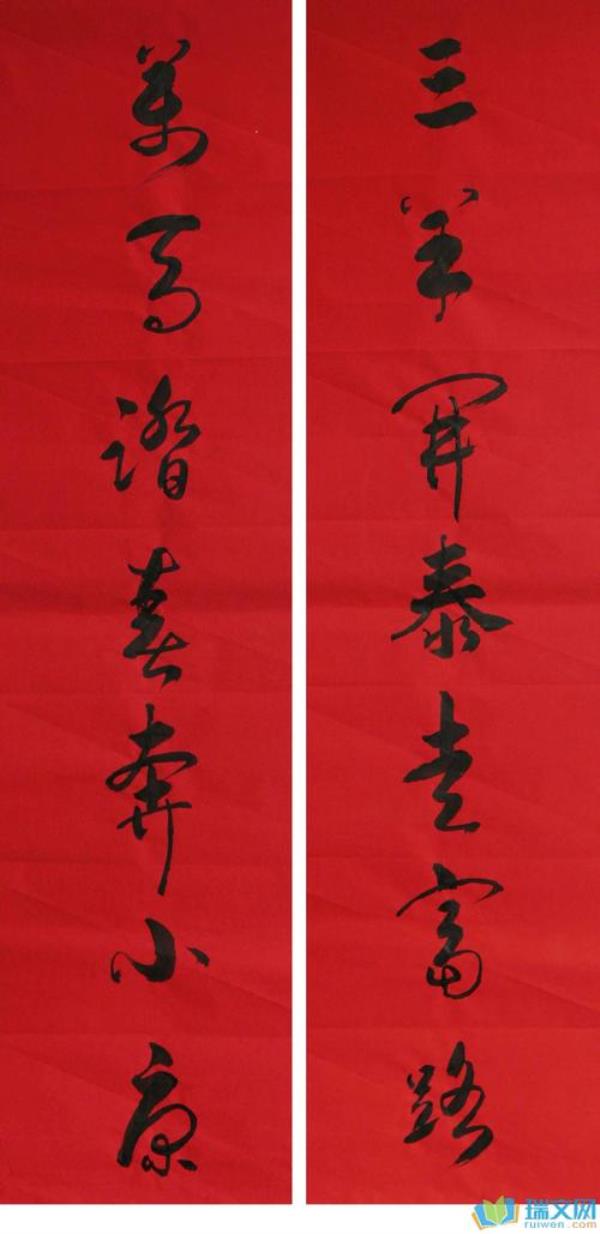 三羊開泰走富路
萬馬諧喜奔小康
瑞文网
ruiwen.com